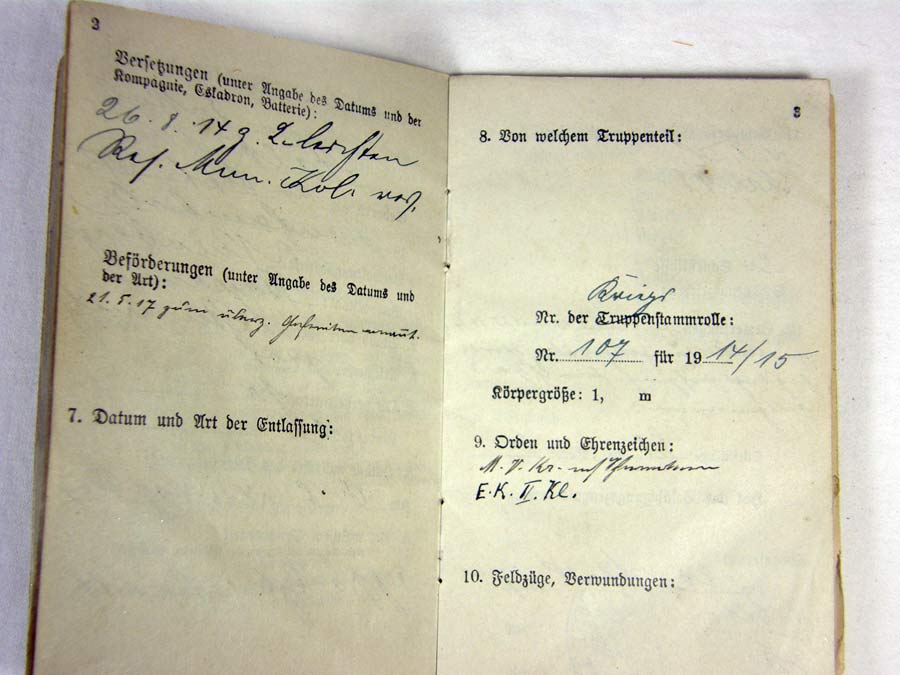 2
Versetzungen (unter Angabe des Datums und der
Kompagnie, Eskadron, Batterie):
26. 8. 14 z. 2. leichten
Res. Mun. Kol. vers.
Beförderungen (unter Angabe des Datums und
der Art):
21. 5. 17 zum überz. Gefreiten ernannt.
7. Datum und Art der Entlassung:
3
8. Von welchem Truppenteil:
Kriegs
Nr. der Truppenstammrolle:
Nr. 107 für 1914/15
Körpergröße: 1, m
9. Orden und Ehrenzeichen:
M. V. Kr. m/
E.K. II. Kl.
10. Feldzüge, Verwundungen: